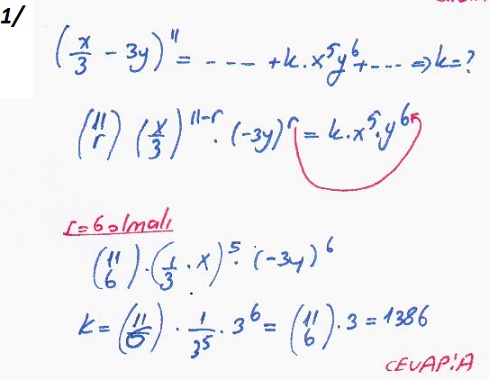 1/
(x/3 - 3y)^11 = ---- + k.x^5y^6 + ---- ⇒ k=?
(11 r) (x/3)^11-r . (-3y)^r = k.x^5.y^6
r=6 olmalı
(11 6) . (1/3 . x)^5 . (-3y)^6
k = (11 6) . 1/3^5 . 3^6 = (11 6) . 3 = 1386
CEVAP: A